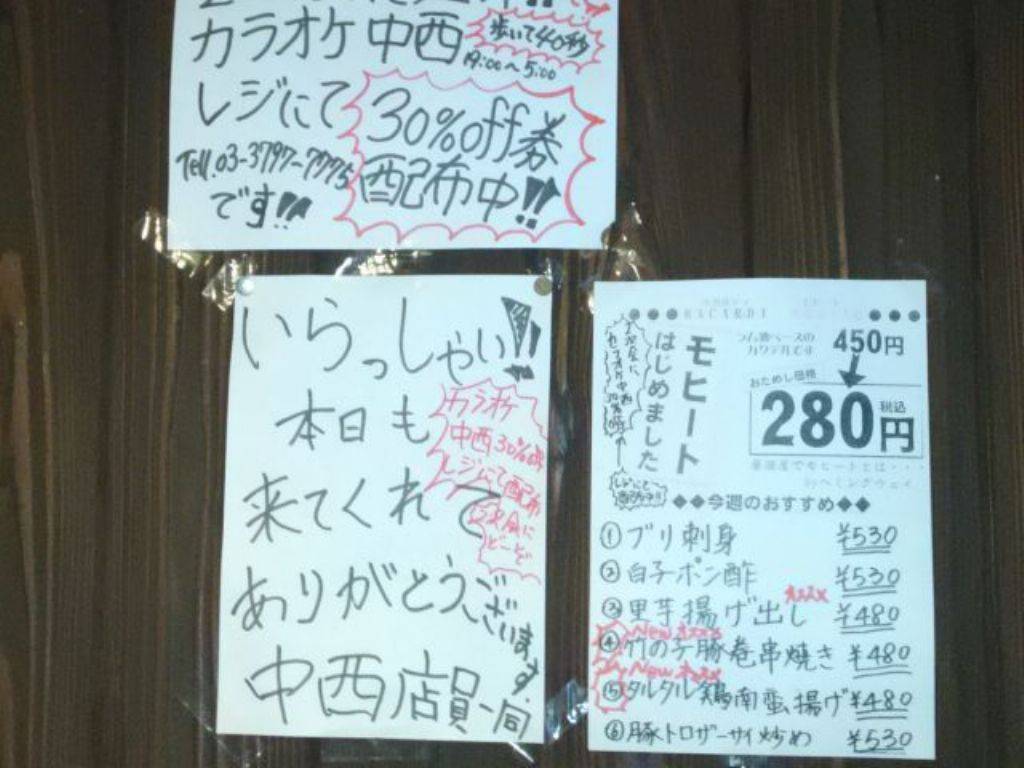 カラオケ 中西
歩いて40秒
19:00〜5:00
レジにて
30%off券
配布中!!
Tell.03-3797-7775
です!!
いらっしゃい!!
本日も
来てくれて
ありがとうございます。
中西店員一同
カラオケ
中西30%券
レジにて配布
どーぞ
BACARDI
モヒート
はじめました
ラム酒ベースの
カクテルです
450円
おためし価格
280円
税込
でモヒートとは・・・
byヘミングウェイ
◆◆今週のおすすめ◆◆
① ブリ刺身 ¥530
② 白子ポン酢 ¥530
③ 里芋揚げ出し ¥480
オススメ
New オススメ
④ 竹の子豚巻串焼き ¥480
New オススメ
⑤ タルタル鶏南蛮揚げ ¥480
⑥ 豚トロザーサイ炒め ¥530